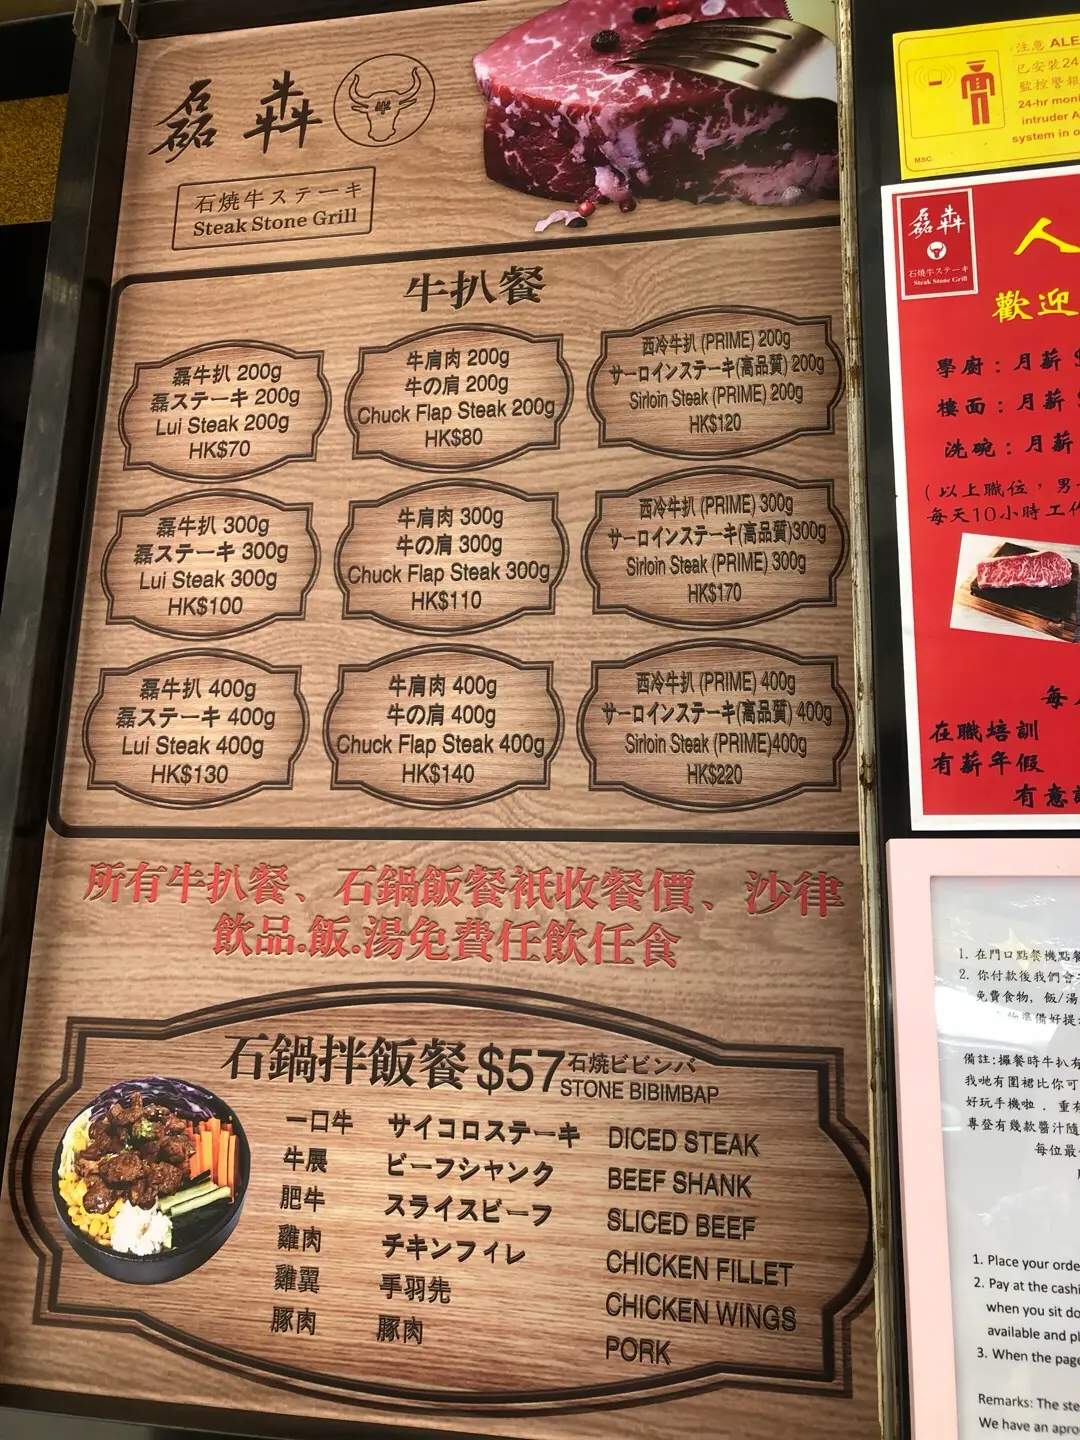 磊犇
石燒牛ステーキ
Steak Stone Grill
牛扒餐
磊牛扒 200g
磊ステーキ 200g
Lui Steak 200g
HK$70
牛肩肉 200g
牛の肩 200g
Chuck Flap Steak 200g
HK$80
西冷牛扒 (PRIME) 200g
サーロインステーキ(高品質) 200g
Sirloin Steak (PRIME) 200g
HK$120
磊牛扒 300g
磊ステーキ 300g
Lui Steak 300g
HK$100
牛肩肉 300g
牛の肩 300g
Chuck Flap Steak 300g
HK$110
西冷牛扒 (PRIME) 300g
サーロインステーキ(高品質)300g
Sirloin Steak (PRIME) 300g
HK$170
磊牛扒 400g
磊ステーキ 400g
Lui Steak 400g
HK$130
牛肩肉 400g
牛の肩 400g
Chuck Flap Steak 400g
HK$140
西冷牛扒 (PRIME) 400g
サーロインステーキ(高品質) 400g
Sirloin Steak (PRIME)400g
HK$220
所有牛扒餐、石鍋飯餐衹收餐價、沙律
飲品.飯.湯免費任飲任食
石鍋拌飯餐 $57 石燒ビビンバ
STONE BIBIMBAP
一口牛 サイコロステーキ DICED STEAK
牛展 ビーフシャンク BEEF SHANK
肥牛 スライスビーフ SLICED BEEF
雞肉 チキンフィレ CHICKEN FILLET
雞翼 手羽先 CHICKEN WINGS
豚肉 豚肉 PORK
注意 ALE
已安裝24
監控警報
24-hr moni
intruder A
system in o
MSC
磊犇
石燒牛ステーキ
Steak Stone Grill
人
歡迎
學廚：月薪
樓面：月薪
洗碗：月薪
(以上職位，男
每天10小時工作
每
在職培訓
有薪年假
有意
1. 在門口點餐機點餐
2. 你付款後我們會
免費食物, 飯/湯
物準備好提
備註:攞餐時牛扒有
我哋有圍裙比你可
好玩手機啦．重有
專登有幾款醬汁隨
每位最
1. Place your orde
2. Pay at the cashi
when you sit do
available and pl
3. When the page
Remarks: The ste
We have an apro